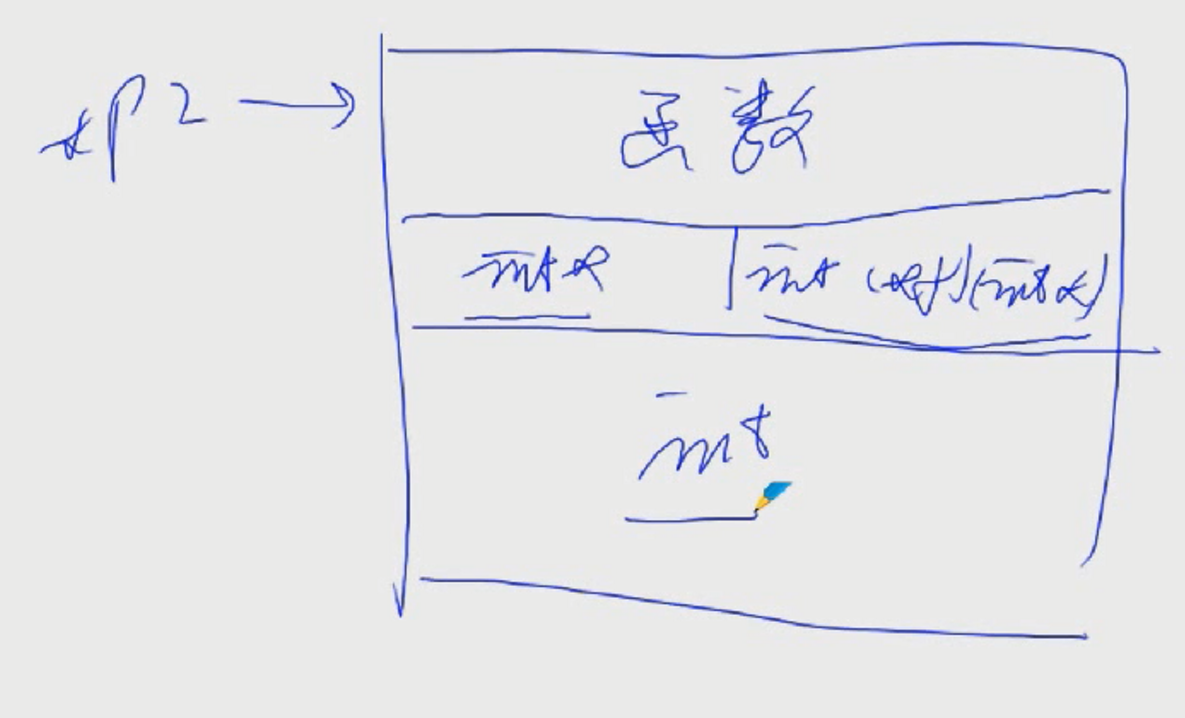 *p2 → 函数
int * int (*f)(int *)
int